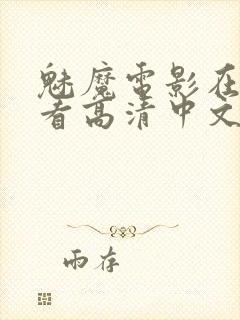 魅魔电影在
看高清中文
雨存